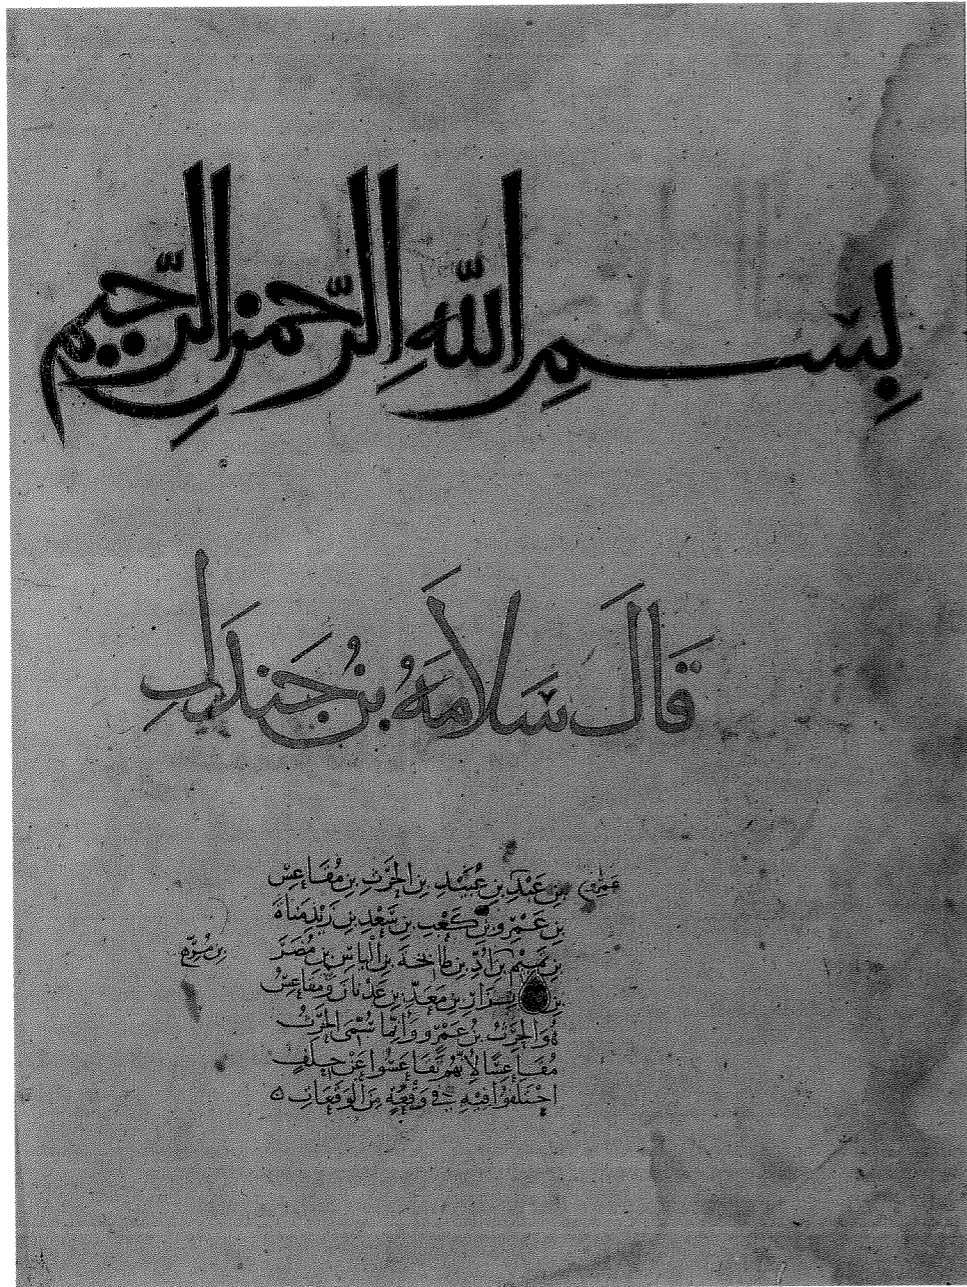 بِسْمِ اللَّهِ الرَّحْمٰنِ الرَّحِيمِ
قَالَ سَلَامَةُ بْنُ جَنْدَلِ
بِنِ عَبْدِ بِنِ عُبَيْدِ بِنِ الحَرْثِ بِنِ مُقَاعِسٍ
بِنِ عَمْرِو بْنِ كَعْبِ بِنِ سَعْدِ بِنِ زَيْدِ مَنَاةَ
بِنِ تَمِيْمِ بِنِ أُدِّ بِنِ طَابِخَةَ بِنِ الْيَاسِ بِنِ مُضَرَ
بِنِ نِزَارِ بِنِ مَعَدِّ بِنِ عَدْنَانَ وَمُقَاعِسٌ
هُوَ الحَرْثُ بْنُ عَمْرٍو وَإِنَّمَا سُمِّيَ الحَرْثُ
مُقَاعِسًا لِأَنَّهُمْ تَقَاعَسُوا عَنْ حِلْفٍ
اخْتَلَفُوا فِيْهِ فِي وَقْعَةٍ مِنَ الْوَقَعَاتِ ه